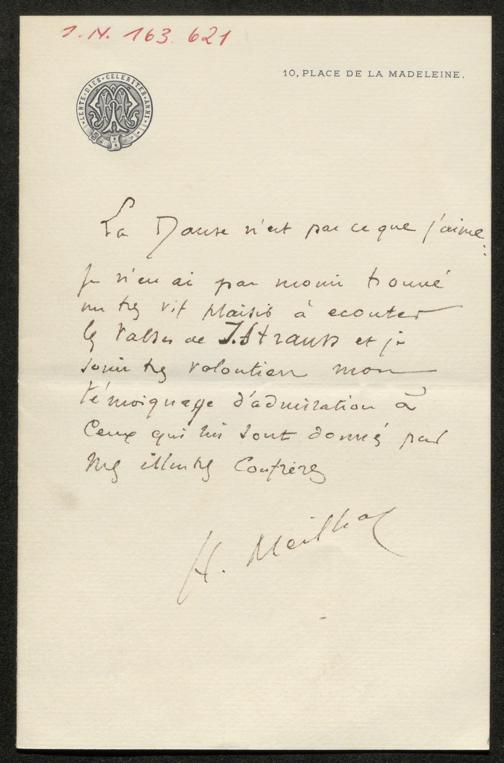 I. N. 163. 621
10, PLACE DE LA MADELEINE.
La Danse n'est pas ce que j'aime :
Je n'en ai pas moins trouvé
un très vif plaisir à ecouter
les valses de J. Strauss et je
joins très volontiers mon
témoignage d'admiration à
ceux qui lui sont donnés par
mes illustres Confrères
H. Meilhac